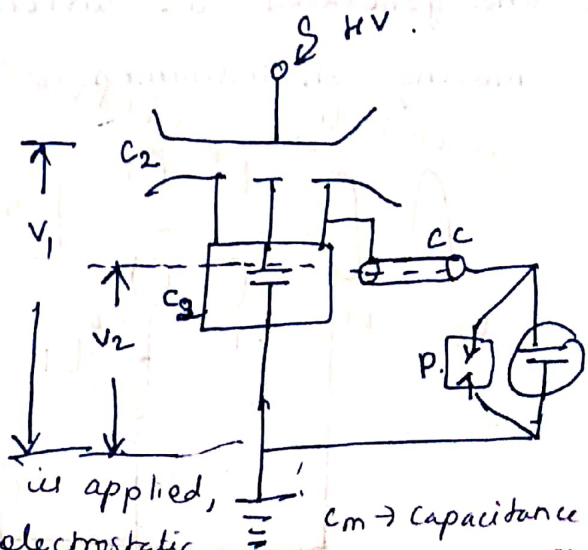 HV.
C2
V1
CC
Cg
V2
P.
is applied,
electrostatic
Cm → Capacitance